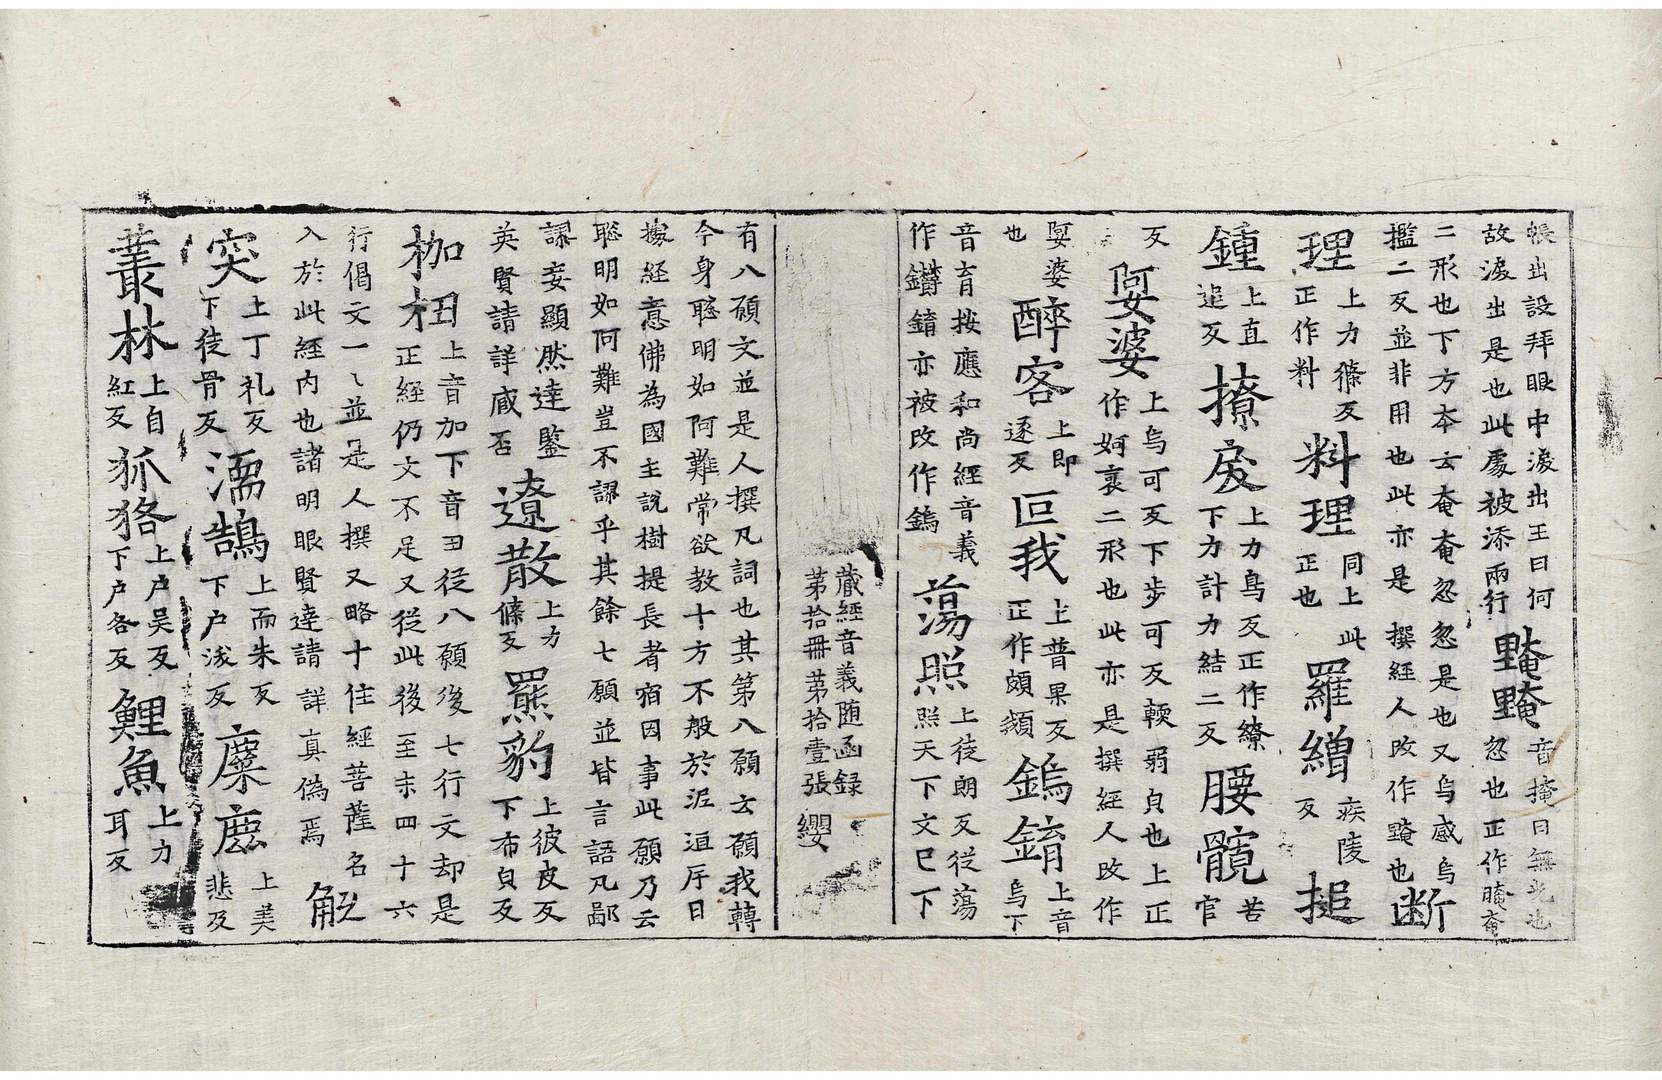 帳出設拜眼中淚出王曰何
故淚出是也此處被添兩行
黤黤
音掩日無光也
忽也正作晻奄
二形也下方本云奄奄忽忽是也又烏感烏
檻二反並非用也此亦是撰經人改作黤也
斷
理
上力條反
正作料
料理
同上此
正也
羅繒
疾陵
反
搥
鍾
上直
追反
撩戾
上力鳥反正作繚
下力計力結二反
腰髖
苦
官
反
婆
上烏可反下步可反䡔弱皃也上正
作婀裒二形也此亦是撰經人改作
婆
也
醉客
上即
遂反
叵我
上普果反
正作頗
鎢錥
上音
烏下
音育按應和尚經音義
作錥亦被改作鎢
蕩照
上徒朗反從蕩
照天下文已下
藏經音義随函録
第拾冊第拾壹張 纓
有八願文並是人撰凡詞也其第八願云願我轉
今身聡明如阿難常欲教十方不般於泥洹序曰
據經意佛為國主說樹提長者宿因事此願乃云
聡明如阿難豈不謬乎其餘七願並皆言語凡鄙
謬妄顯然達鑒
英賢請詳臧否
遼散
上力
條反
羆豹
上彼皮反
下布皃反
枷杻
上音加下音丑從八願後七行文却是
正經仍文不足又從此後至末四十六
行偈文一一並是人撰又略十住經菩薩名
入於此經内也諸明眼賢達請詳真偽焉
觝
突
上丁礼反
下徒骨反
濡鵠
上而朱反
下户沃反
麋鹿
上美
悲反
叢林
上自
紅反
狐狢
上户吴反
下户各反
鯉魚
上力
耳反